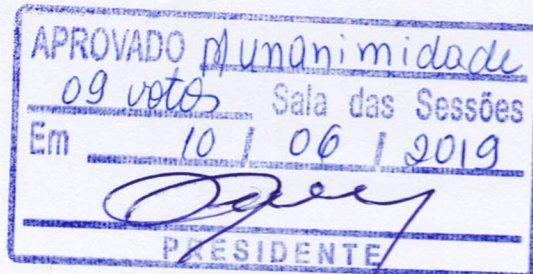 APROVADO p/unanimidade
09 votos Sala das Sessões
Em 10 / 06 / 2019
PRESIDENTE